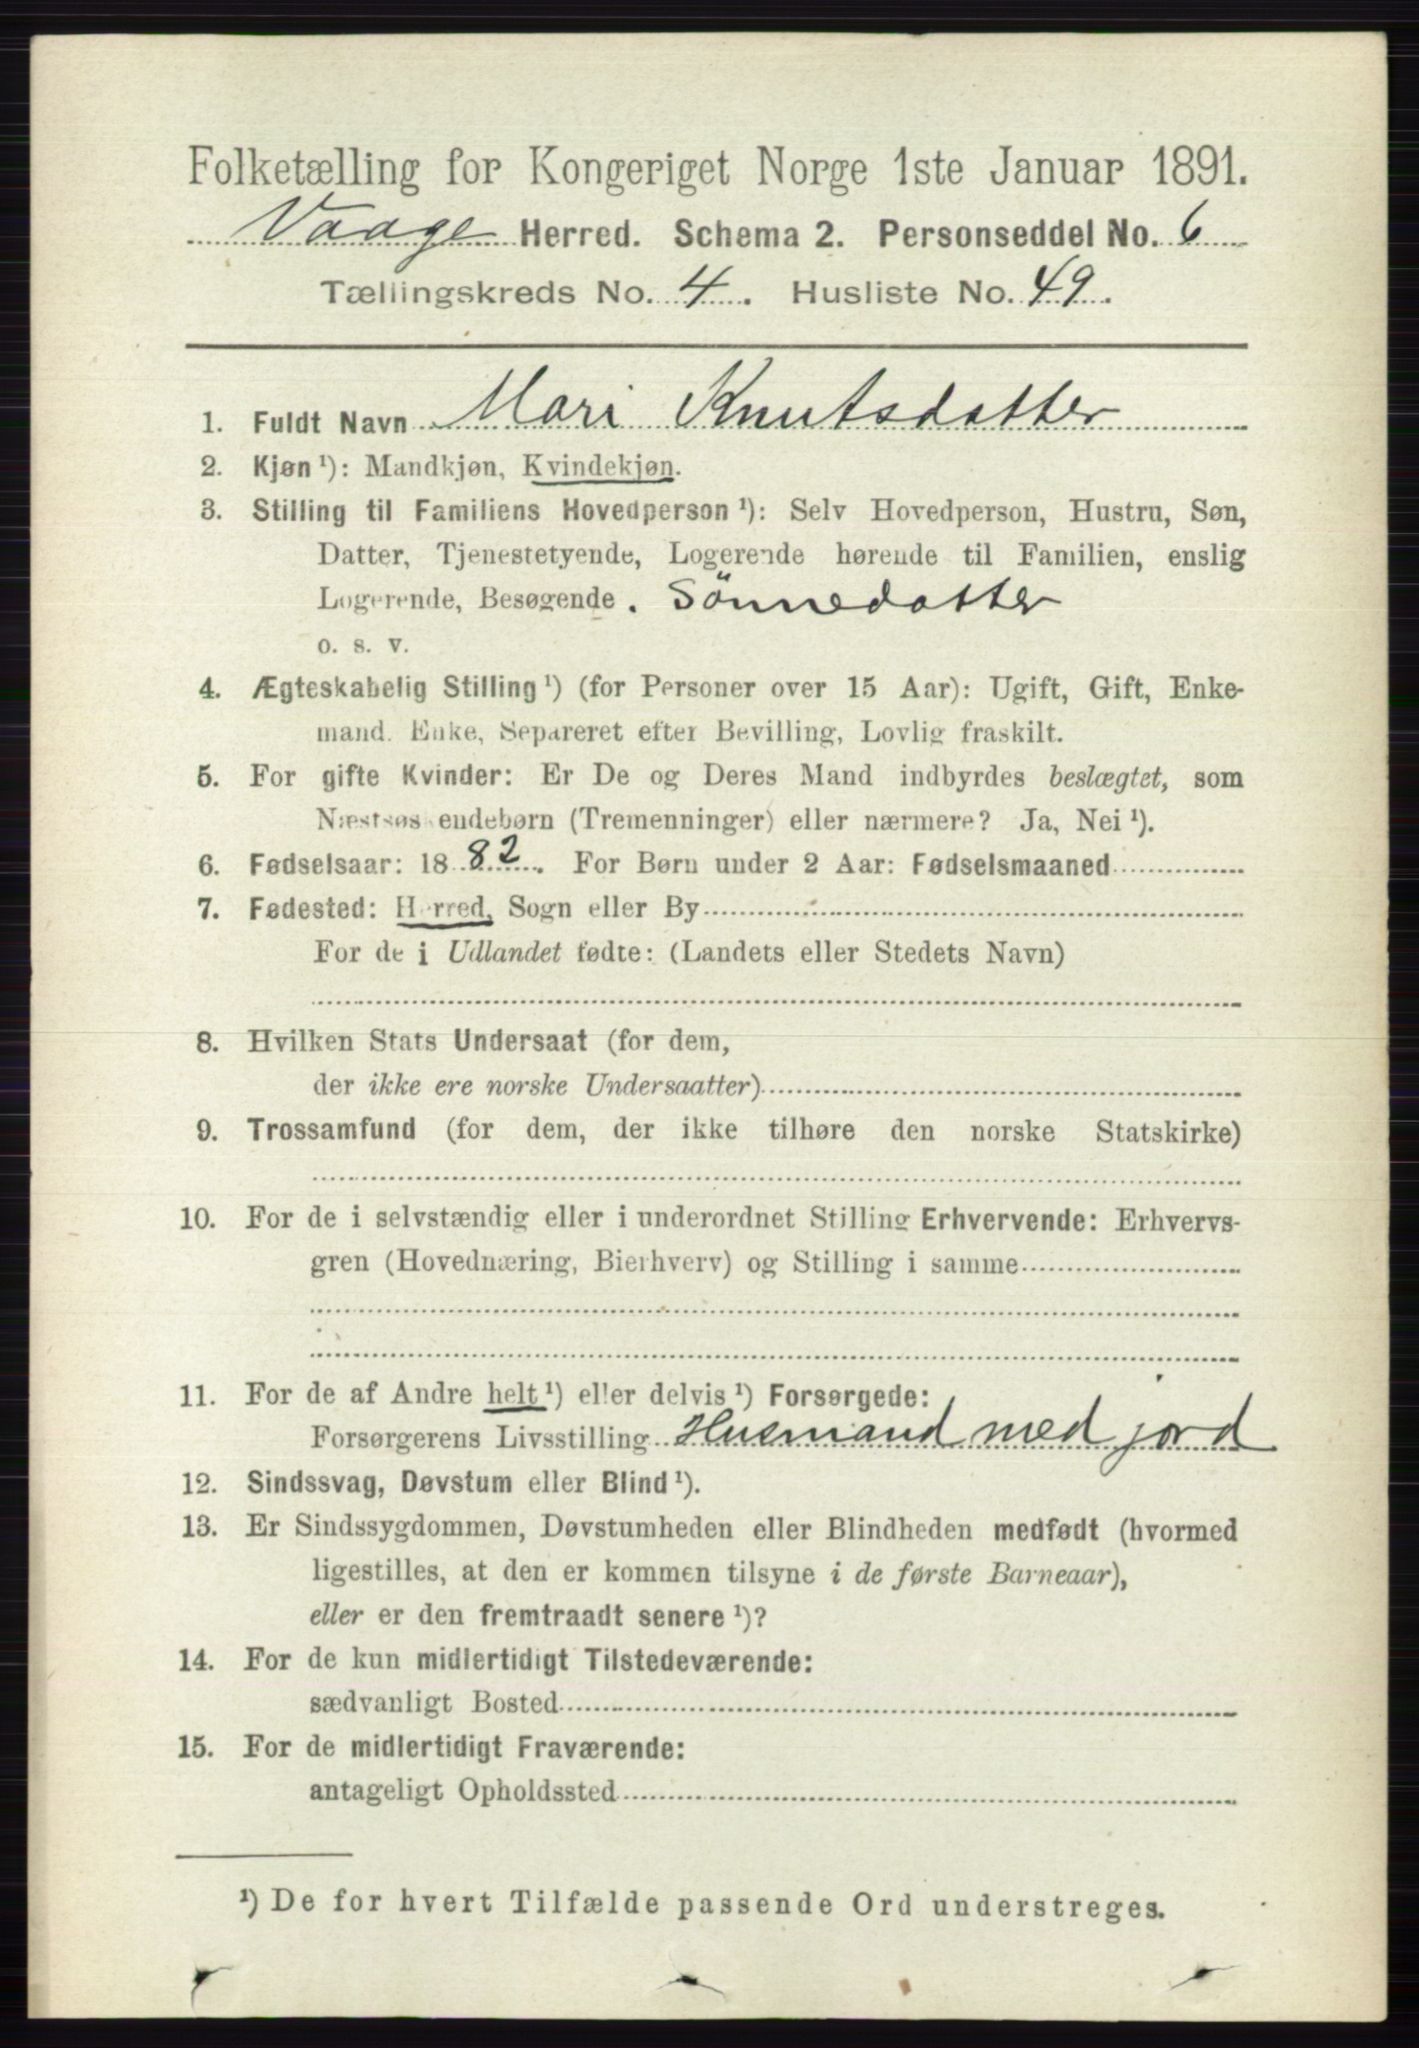 Folketælling for Kongeriget Norge 1ste Januar 1891.
Vaage Herred. Schema 2. Personseddel No. 6
Tællingskreds No. 4. Husliste No. 49.
1. Fuldt Navn Mari Knutsdatter
2. Kjøn ¹): Mandkjøn, Kvindekjøn.
3. Stilling til Familiens Hovedperson ¹): Selv Hovedperson, Hustru, Søn,
Datter, Tjenestetyende, Logerende hørende til Familien, enslig
Logerende, Besøgende. Sönnedatter
o. s. v.
4. Ægteskabelig Stilling ¹) (for Personer over 15 Aar): Ugift, Gift, Enke-
mand, Enke, Separeret efter Bevilling, Lovlig fraskilt.
5. For gifte Kvinder: Er De og Deres Mand indbyrdes beslægtet, som
Næstsøskendebørn (Tremenninger) eller nærmere? Ja, Nei ¹).
6. Fødselsaar: 1882. For Børn under 2 Aar: Fødselsmaaned
7. Fødested: Herred, Sogn eller By
For de i Udlandet fødte: (Landets eller Stedets Navn)
8. Hvilken Stats Undersaat (for dem,
der ikke ere norske Undersaatter)
9. Trossamfund (for dem, der ikke tilhøre den norske Statskirke)
10. For de i selvstændig eller i underordnet Stilling Erhvervende: Erhvervs-
gren (Hovednæring, Bierhverv) og Stilling i samme
11. For de af Andre helt ¹) eller delvis ¹) Forsørgede:
Forsørgerens Livsstilling Husmand med jord
12. Sindssvag, Døvstum eller Blind ¹).
13. Er Sindssygdommen, Døvstumheden eller Blindheden medfødt (hvormed
ligestilles, at den er kommen tilsyne i de første Barneaar),
eller er den fremtraadt senere ¹)?
14. For de kun midlertidigt Tilstedeværende:
sædvanligt Bosted
15. For de midlertidigt Fraværende:
antageligt Opholdssted
¹) De for hvert Tilfælde passende Ord understreges.